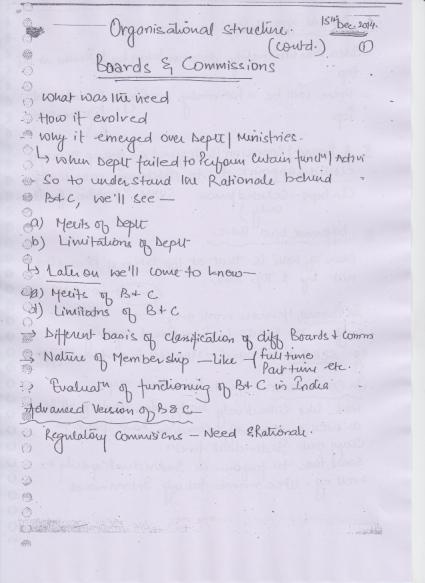 15th Dec. 2014.
Organisational structure.
(Contd.) ①
Boards & Commissions
What was the need
How it evolved
Why it emerged over Deptt/ Ministries.
↳ When Deptt failed to Perform Certain funcn/
So to understand the Rationale behind
B+C, we'll see —
a) Merits of Deptt
b) Limitations of Deptt
↳ Later on we'll come to know—
Merits of B+C
d) Limitatns of B+C
→ Different basis of classification of diff. Boards + Comms
→ Nature of Membership — like — full time
Part time etc.
Evaluatn of functioning of B+C in India
Advanced Version of B & C—
Regulatory Commissions — Need & Rationale.